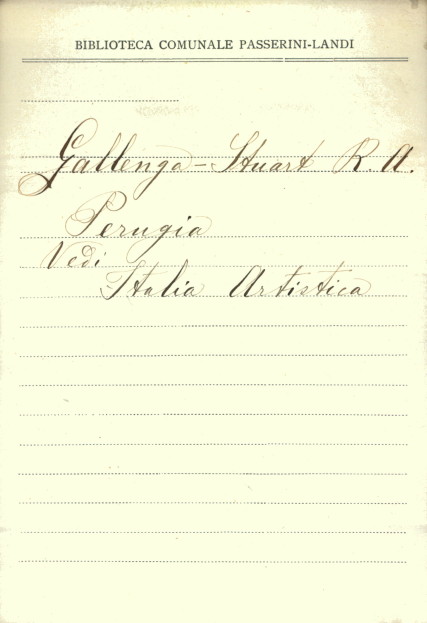 BIBLIOTECA COMUNALE PASSERINI-LANDI
Gallenga-Stuart R. A.
Perugia
Vedi
Italia Artistica